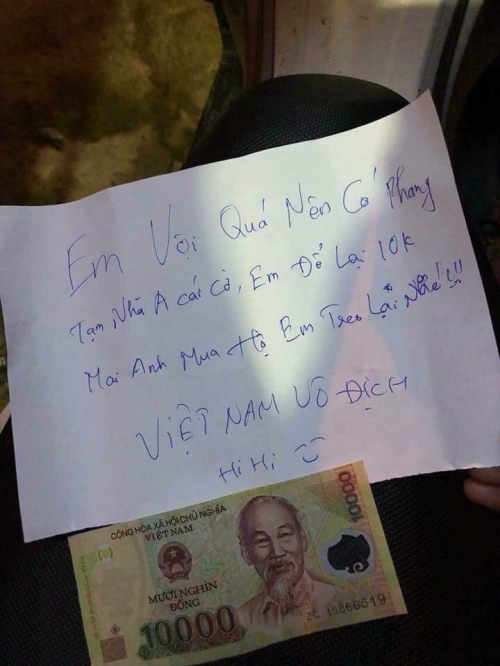 Em Vội Quá Nên Có Phang
Tạm Nhà A cái cờ, Em Để Lại 10k
Mai Anh Mua Hộ Em Treo Lại Nhé!!
VIỆT NAM VÔ ĐỊCH
Hi Hi
CỘNG HÒA XÃ HỘI CHỦ NGHĨA
VIỆT NAM
10000
MƯỜI NGHÌN
ĐỒNG
10000
ZC 15866519